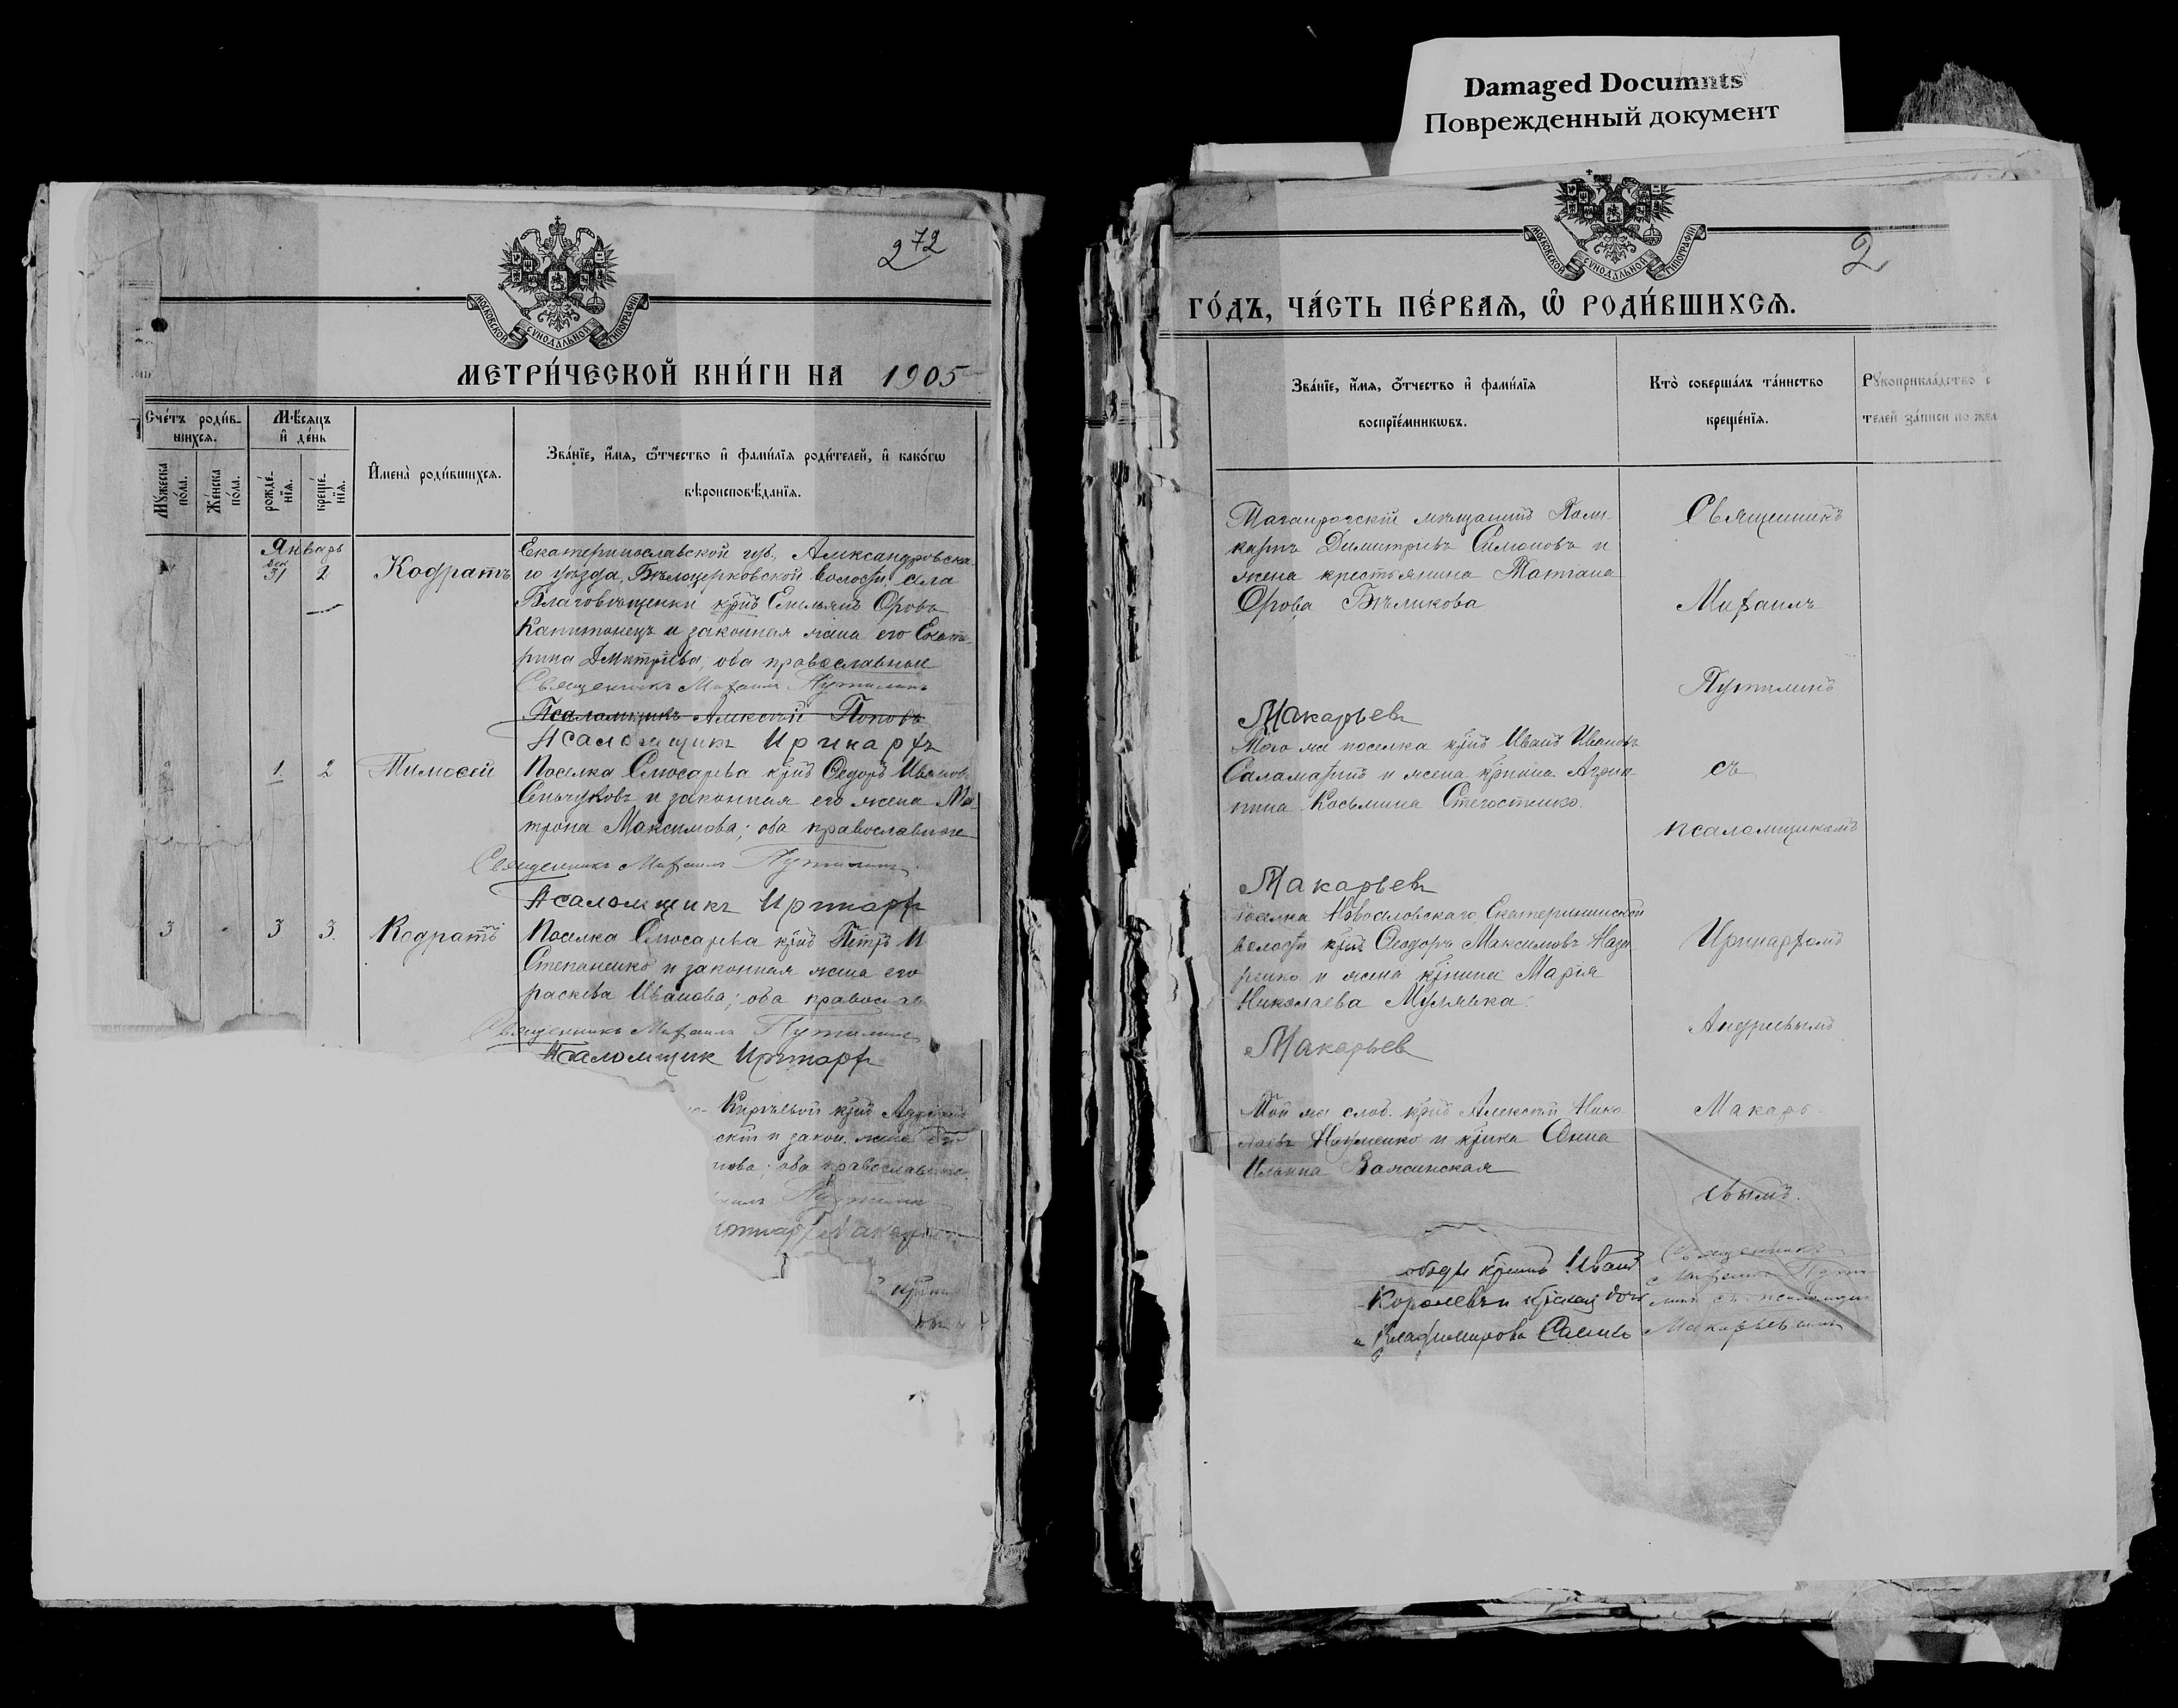 Damaged Documnts
Поврежденный документ
272
МОСКОВСКОЙ СѴНОДАЛЬНОЙ ТИПОГРАФІИ
МЕТРИ́ЧЕСКОЙ КНИ́ГИ НА 1905
Сче́тъ роди́в-
шихся.
Мѣ́сяцъ
и҆ де́нь
Мꙋ́жеска
по́ла.
Же́нска
по́ла.
рожде́-
нїя.
креще́-
нїя.
И҆мена̀ роди́вшихся.
Зва́нїе, и҆́мя, ѻ҆́тчество и҆ фами́лїя роди́телей, и҆ како́гѡ
вѣроисповѣ́данїя.
Январь
Дек.
31 2
Кодратъ
Екатеринославской губ., Александровска
го уѣзда, Бѣлоцерковской волости, села
Благовѣщенки кр̃нъ Емельянъ Ѳровъ
Капитонецъ и законная жена его Екате-
рина Дмитріева, оба православные
Священникъ Михаилъ Путилинъ
Псаломщикъ Алексѣй Поповъ
Псаломщикъ Иринархъ
1 2
Тимоѳей
Поселка Слюсарева кр̃нъ Ѳедоръ Иванов
и законная его жена Ма-
трона Максимова; оба православные
Священникъ Михаилъ Путилинъ
Псаломщикъ Иринархъ
3 - 3 3.
Кодратъ
Поселка Слюсарева кр̃нъ Петръ И
Степаненко и законная жена его
раскева Иванова; оба православ
Священникъ Михаилъ Путилинъ
Псаломщик Иринархъ
кр̃нъ
скій и закон. жена его
нова; оба православные.
Путилин
Макарье
2
МОСКОВСКОЙ СѴНОДАЛЬНОЙ ТИПОГРАФІИ
ГО́ДЪ, ЧА́СТЬ ПЕ́РВАЯ, Ѡ҆ РОДИ́ВШИХСЯ.
Зва́нїе, и҆́мя, ѻ҆́тчество и҆ фами́лїя
воспрїе́мникѡвъ.
Кто̀ соверша́лъ та́инство
креще́нїя.
Рꙋкоприкла́дство с
телей за́писи по жел
Таганрогскій мѣщанинъ Поли-
карпъ Димитріевъ Симоновъ и
жена крестьянина Татіана
Ѳрова Бѣликова
Макарьевъ
Того же поселка кр̃нъ Иванъ Ивановъ
Саламахинъ и жена кр̃нина Агрип-
пина Косьмина
Макарьевъ
поселка Новоселовскаго, Екатерининской
волости кр̃нъ Ѳеодоръ Максимовъ Наза
ренко и жена кр̃нина Марія
Николаева
Макарьев
Той же слоб. кр̃нъ Алексѣй Нико-
лаевъ Науменко и кр̃нка Анна
Ильина
кр̃нинъ Иванъ
Владимирова
Священникъ
Михаилъ
Путилинъ
съ
псаломщикомъ
Иринархомъ
Андреевымъ
Макарь-
евымъ.
Священникъ
Макарьевымъ